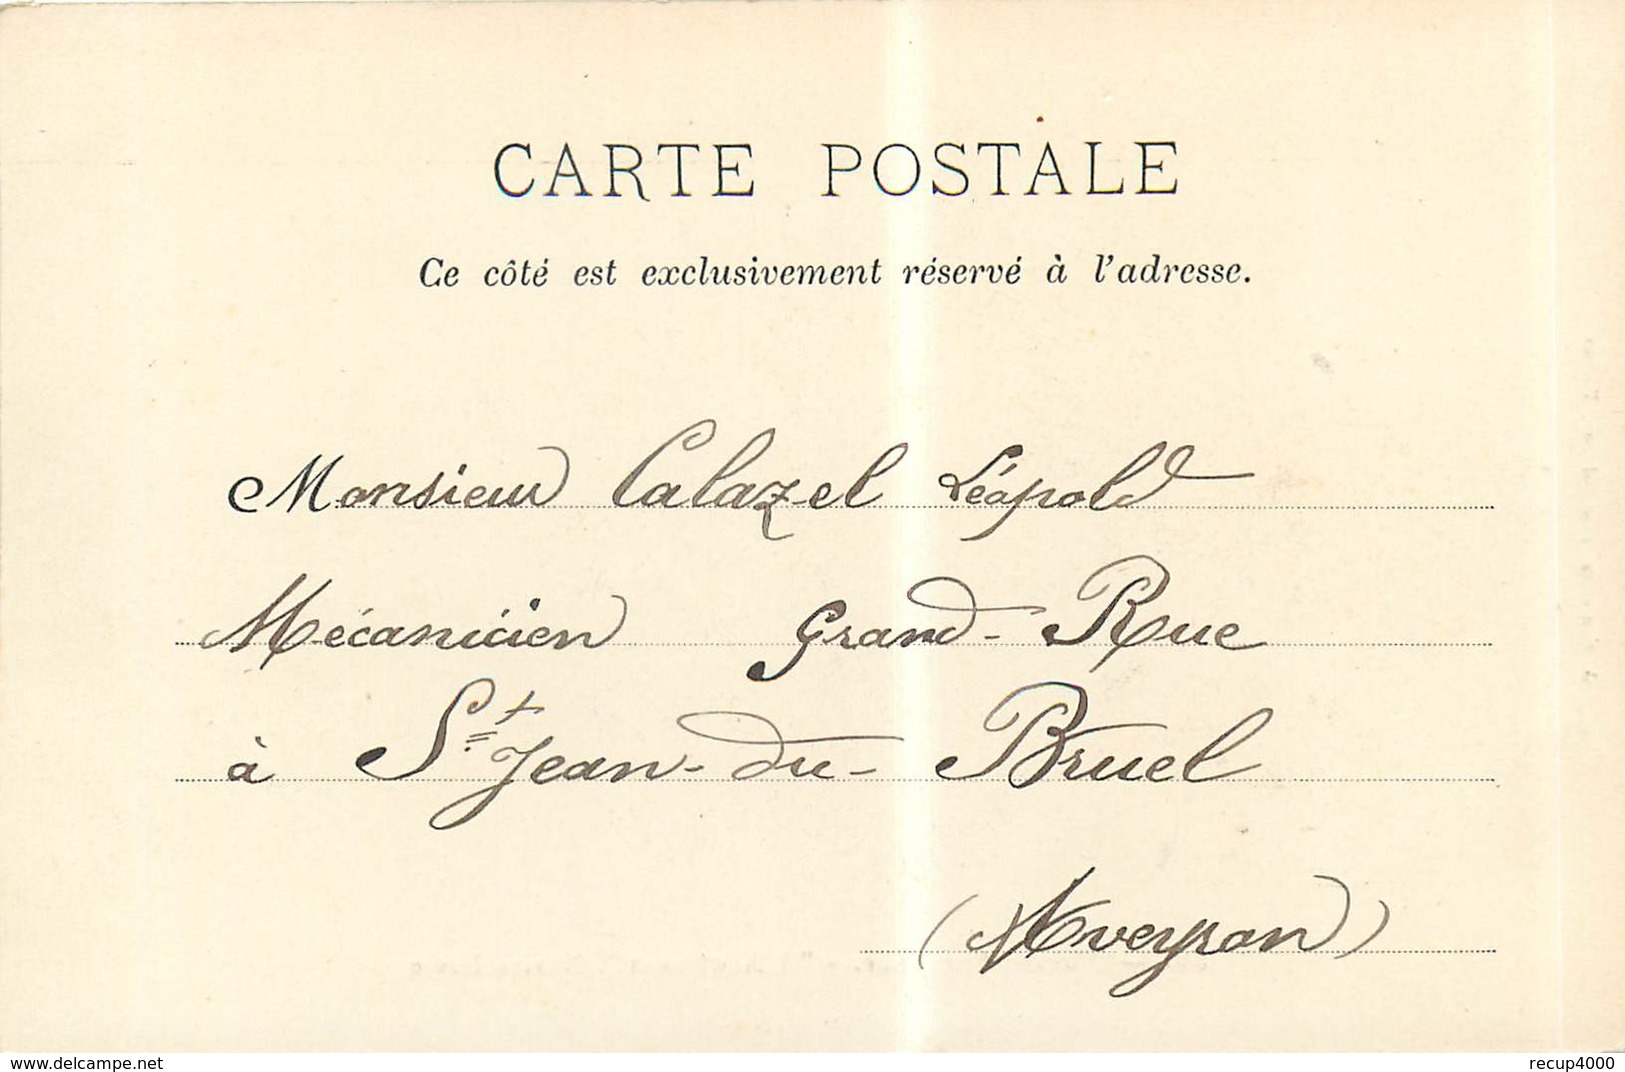 CARTE POSTALE
Ce côté est exclusivement réservé à l'adresse.
Monsieur Calazel Léopold
Mécanicien Grand-Rue
à St Jean-du-Bruel
(Aveyron)
www.delcampe.net
recup4000